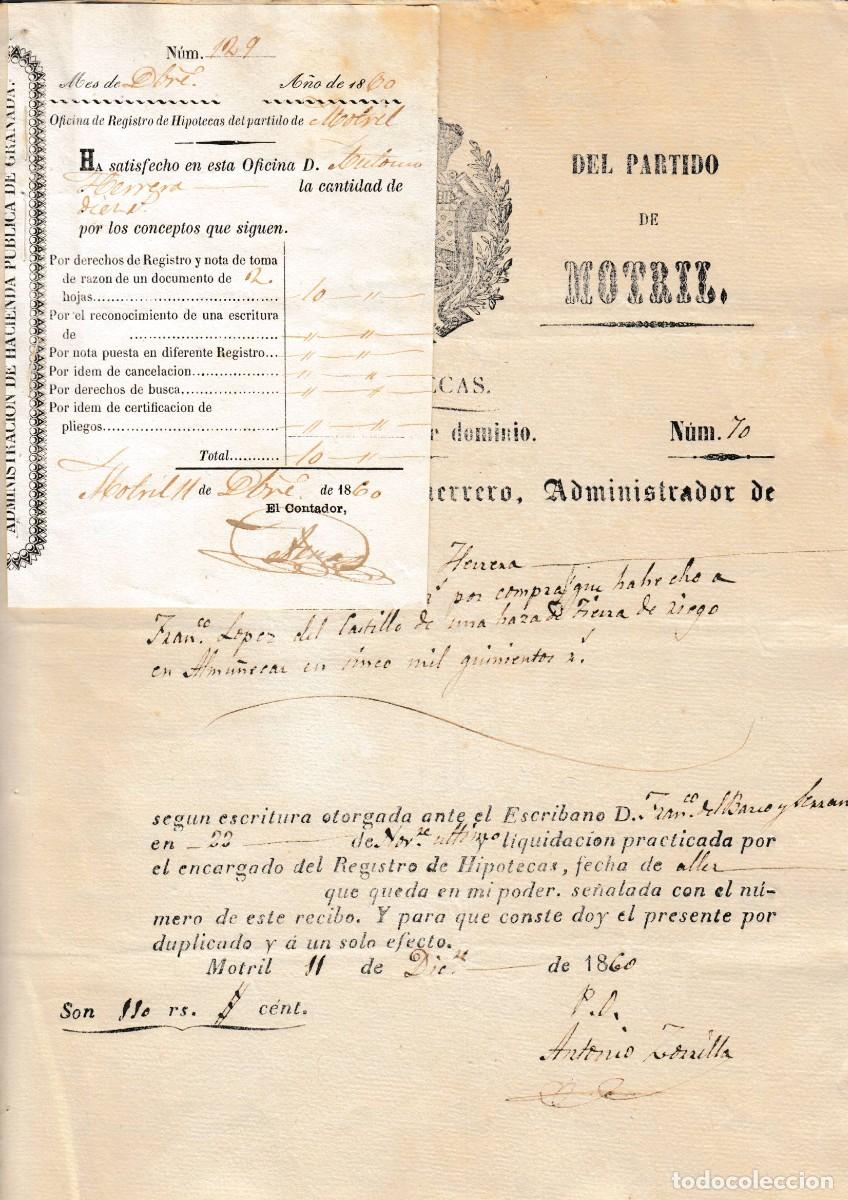 ADMINISTRACION DE HACIENDA PUBLICA DE GRANADA.
Núm. 129
Mes de Dbrê. Año de 1860
Oficina de Registro de Hipotecas del partido de Motril
HA satisfecho en esta Oficina D. Antonio
Herrera la cantidad de
diez r.
por los conceptos que siguen.
Por derechos de Registro y nota de toma
de razon de un documento de 2
hojas 10 "
Por el reconocimiento de una escritura
de " "
Por nota puesta en diferente Registro " "
Por idem de cancelacion " "
Por derechos de busca " "
Por idem de certificacion de
pliegos " "
Total 10 "
Motril 11 de Dbrê. de 1860
El Contador,
DEL PARTIDO
DE
MOTRIL.
ECAS.
dominio. Núm. 70
uerrero, Administrador de
Herrera
por compra que ha hecho a
Fran.co Lopez del Castillo de una haza de Tierra de riego
en Almuñecar en sinco mil quinientos r.s
segun escritura otorgada ante el Escribano D. Fran.co del Barco y Serran
en 22 de Nov.re ultimo y liquidacion practicada por
el encargado del Registro de Hipotecas, fecha de aller
que queda en mi poder. señalada con el nú-
mero de este recibo. Y para que conste doy el presente por
duplicado y á un solo efecto.
Motril 11 de Dic.re de 1860
Son 110 rs. " cént.
P.O.
Antonio Zorrilla
todocoleccion